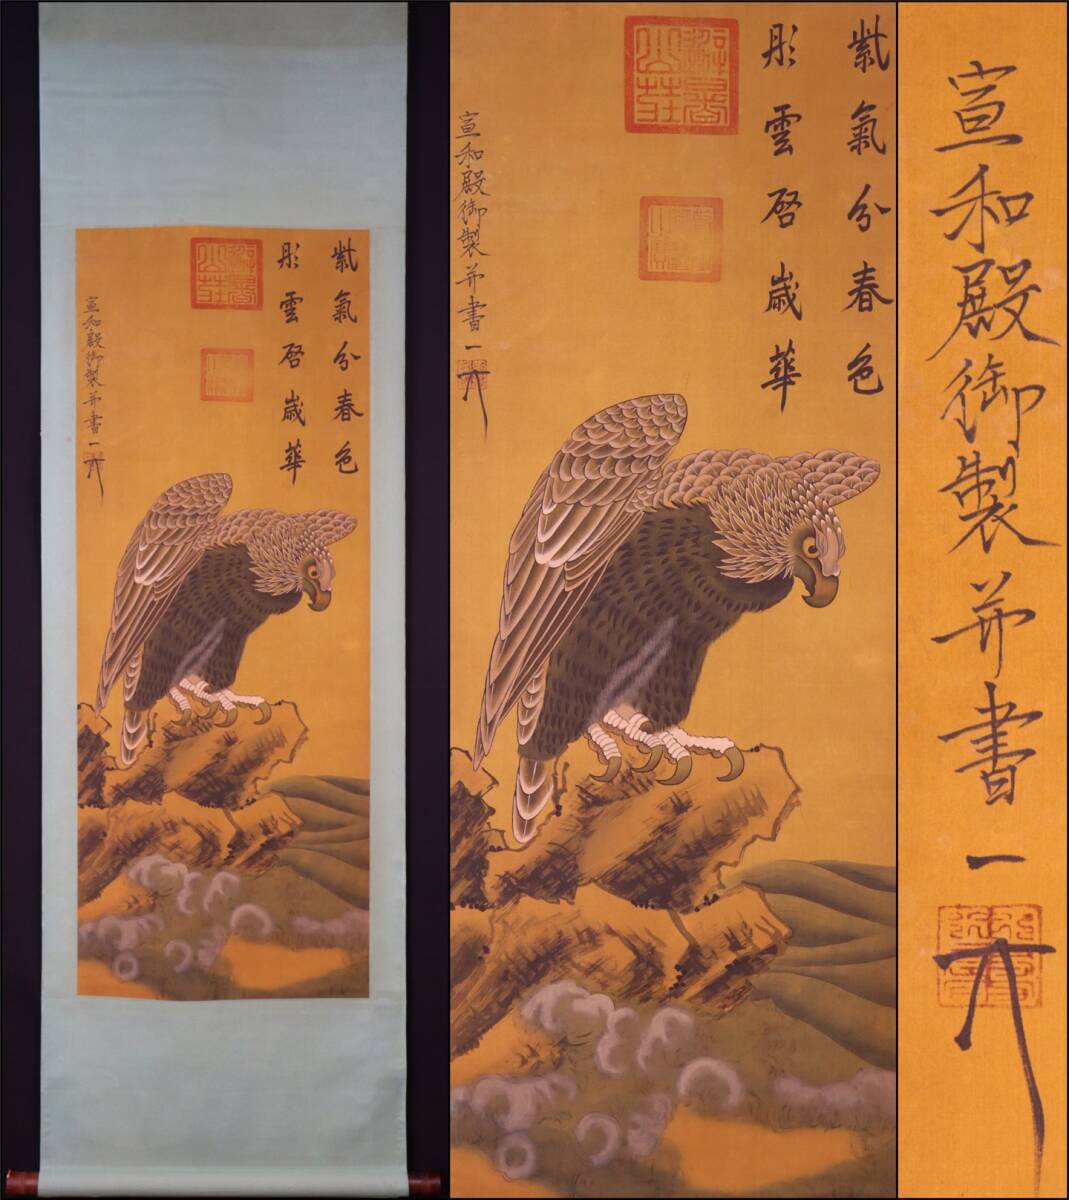 紫氣分春色
彤雲啓歲華
宣和殿御製并書一
紫氣分春色
彤雲啓歲華
宣和殿御製并書一
宣和殿御製并書一